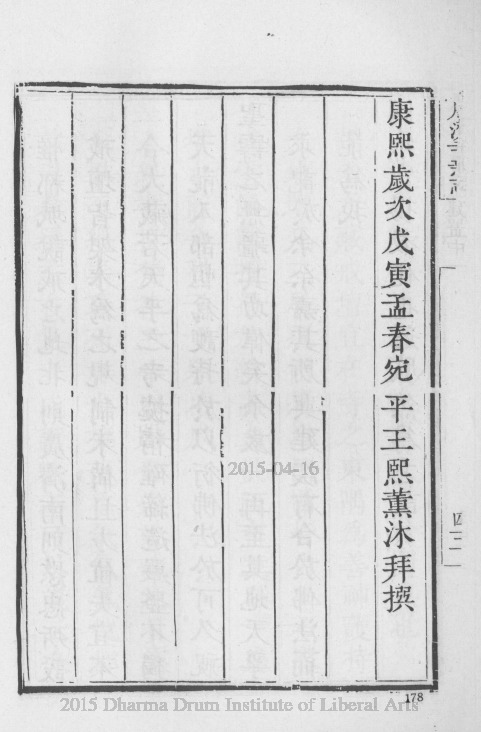 康熙歲次戊寅孟春宛平王熙薰沐拜撰
四二
178
2015-04-16
2015 Dharma Drum Institute of Liberal Arts